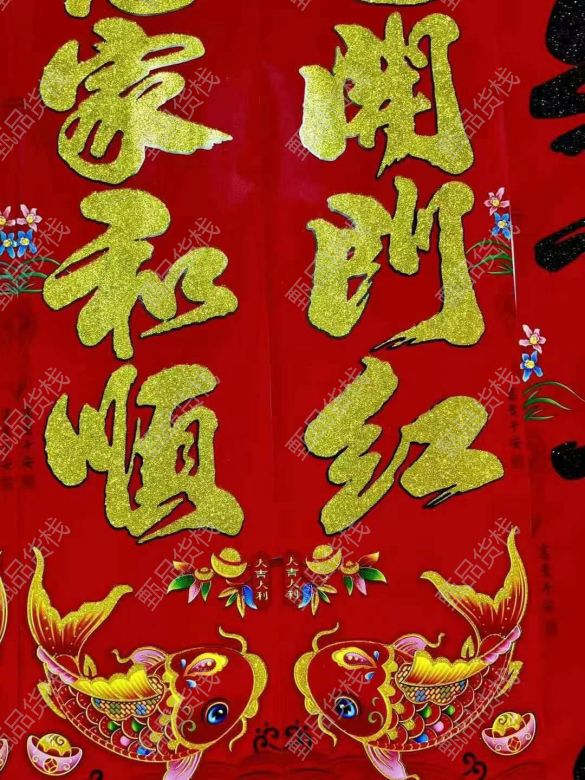 開門紅
家和順
大吉大利
大吉大利
甄品货栈